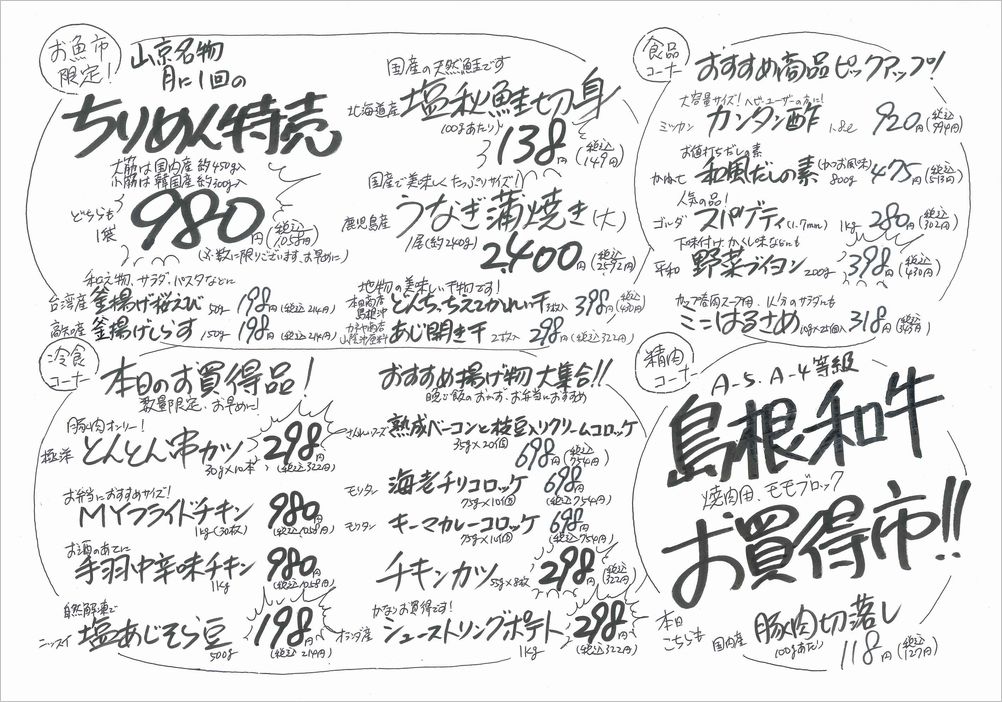 お魚市
限定!
山京名物
月に1回の
ちりめん特売
大筋は国内産 約450g入
小筋は韓国産 約300g入
どちらも
1袋
980円
(税込1058円)
(※数に限りございます、お早めに)
和え物、サラダ、パスタなどに
台湾産 釜揚げ桜えび 50g 198円 (税込214円)
高知産 釜揚げしらす 150g 198円 (税込214円)
国産の天然鮭です
北海道産 塩秋鮭切身
100gあたり 138円 (税込149円)
国産で美味しくたっぷりサイズ!
鹿児島産 うなぎ蒲焼き(大)
1尾(約240g) 2,400円 (税込2592円)
地物の美味しい干物です!
島根沖 とんちっちえてかれい干 3枚入 398円 (税込430円)
あじ開き干 2枚入 298円 (税込322円)
食品
コーナー
おすすめ商品ピックアップ!
大容量サイズ!ヘビーユーザーの方に!
ミツカン カンタン酢 1.8ℓ 920円 (税込994円)
お値打ちだしの素
かねて 和風だしの素 (かつお風味) 800g 475円 (税込513円)
人気の品!
ゴルダ スパゲティ (1.7mm) 1kg 280円 (税込302円)
下味付け、かくし味などにも
平和 野菜ブイヨン 200g 398円 (税込430円)
カップ春雨スープ用、1人分のサラダにも
ミニはるさめ 10g×25個入 318円 (税込343円)
冷食
コーナー
本日のお買得品!
数量限定、お早めに!
豚肉オンリー!
極洋 とんとん串カツ 298円
30g×10本 (税込322円)
お弁当におすすめサイズ!
MYフライドチキン 980円
1kg(30枚) (税込1058円)
お酒のあてに
手羽中辛味チキン 980円
1kg (税込1058円)
自然解凍で
ニッスイ 塩あじそら豆 198円
500g (税込214円)
おすすめ揚げ物 大集合!!
晩ご飯のおかず、お弁当におすすめ
さんれいフーズ 熟成ベーコンと枝豆入りクリームコロッケ
35g×20個 698円 (税込754円)
モリタン 海老チリコロッケ 698円
75g×10個 (税込754円)
モリタン キーマカレーコロッケ 698円
75g×10個 (税込754円)
チキンカツ 55g×8枚 298円 (税込322円)
かなりお買得です!
オランダ産 シューストリングポテト 298円
1kg (税込322円)
精肉
コーナー
A-5、A-4等級
島根和牛
焼肉用、モモブロック
お買得市!!
本日
こちらも
国内産 豚肉切落し
100gあたり 118円 (税込127円)